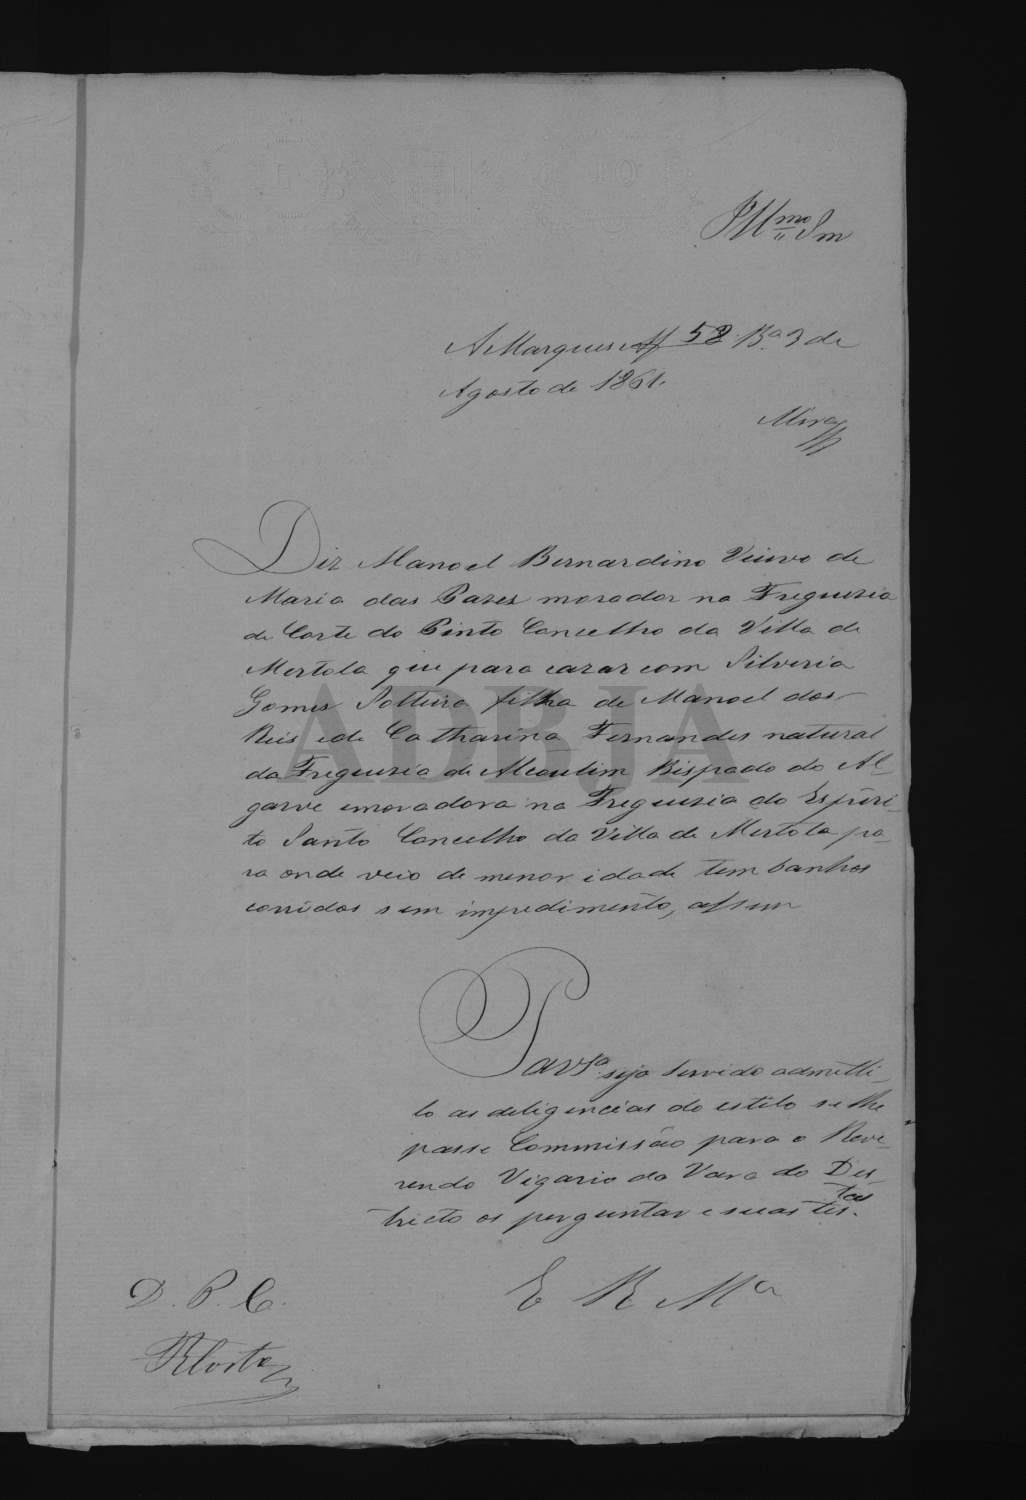 Illmo Snr
A Marques af 58. Ba 3 de
Agosto de 1861.
Mira
Diz Manoel Bernardino Viuvo de
Maria das Pazes morador na Freguezia
de Corte do Pinto Concelho da Villa de
Mertola que para cazar com Silveria
Gomes Solteira filha de Manoel dos
Reis e de Catharina Fernandes natural
da Freguezia de Alcoutim Bispado do Al-
garve e moradora na Freguezia do Espiri-
to Santo Concelho da Villa de Mertola pa-
ra onde veio de menor idade tem banhos
corridos sem impedimento, assim
P a V Sa seja servido admitti-
lo as deligencias do estilo se lhe
passe Commissão para o Reve-
rendo Vigario da Vara do Des-
tricto os perguntar e suas tes.tas
E R Mce
D. P. C.
RCosta
ADBJA